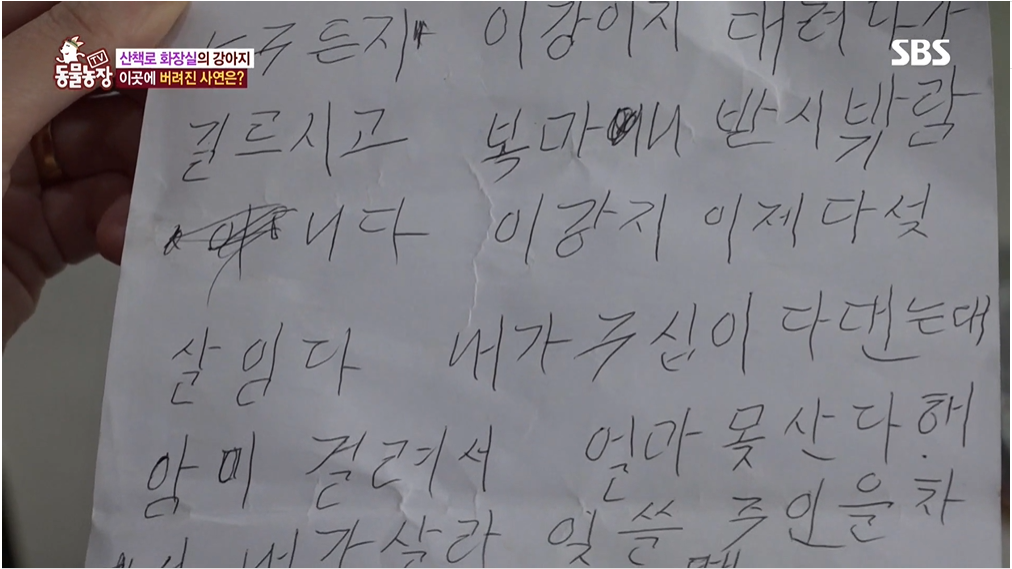 TV 동물농장
산책로 화장실의 강아지
이곳에 버려진 사연은?
SBS
이강아지 대려다가
길르시고 복마니 반시밖람
니다 이강지 이제다섯
살임다 내가 주심이 다댄는대
암미 걸려서 얼마 못산다해
내가살라 잇쓸 주인을차